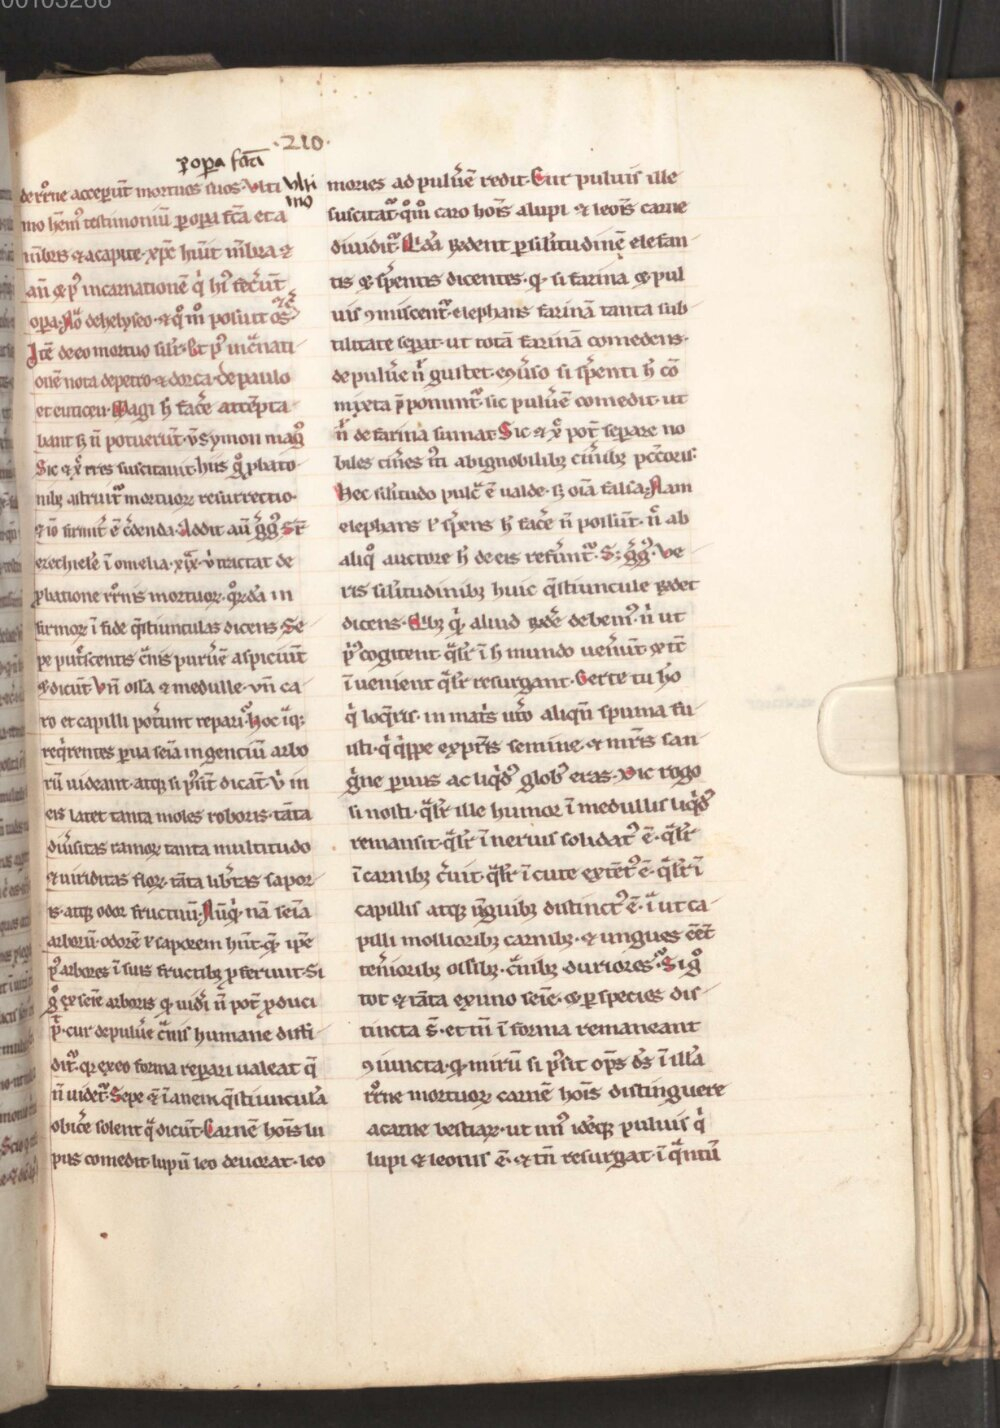 00103266
·210·
ꝑ oꝑa fcā
de rr̄ne acceper̄t mortuos suos. Vlti
Vlti
mo
mo hēmꝰ testimoniū ꝑ oꝑa fc̄a et a
mēbris ⁊ a capite. xp̄c hūit mēbra ⁊
añ ⁊ pꝰ incarnationē q̇ hͥ fec̄unt
oꝑa. de helyseo. ⁊ qͦ mͦ posuit os
Itē de eo mortuo silr̄. Et pꝰ incͣnati
onē nota de petro. ⁊ dorca. de paulo
et euticeu. Magi h̄ fac̄e attēpta
bant sꝫ ñ potuerūt. ꝟ Symon magꝰ
Sic ⁊ xͥ tres suscitauit. hiis gͦ ꝓbatio
nibꝫ astruitᷣ mortuoꝝ resurrectio.
⁊ iō firmit̄ ē c̄denda. Addit aū gͥgꝰ Sr̄
ezechielē ī omelia. xix. ꝟ tractat de
ꝓbatione rr̄nis mortuoꝝ. qͦrdā in
firmoꝝ ī fide q̄stiunculas dicens Se
pe put̄scentis cͣnis puꝉuē aspiciūt
⁊ dicūt vñ ossa ⁊ medulle. vñ ca
ro et capilli pot̄unt repari. Hoc itͣqꝫ
req̇rentes ꝑua seīa ingenciū arbo
rū uideant. atqꝫ si pn̄t dicāt. ꝟ in
eis latet tanta moles roboris. tāta
diu̓sitas ramoꝝ tanta multitudo
⁊ uiriditas floꝝ. tāta lib̄tas sapor
is. atqꝫ odor fructuū. Nūq̇ nā seīa
arboꝝ. odorē ł saporem hn̄t. qͣ ip̄e
pꝰ arbores ī suis fructibꝫ ꝓferunt. Si
gͦ ex seīe arboris qͣ uidͥ ñ potͥ ꝓduci
pͭ. cur de puluē cͣnis humane diffi
ditᷣ. qꝛ ex eo forma repari ualeat q̄
ñ uidetᷣ. Sepe ⁊ īanem q̄stiunculā
obic̄e solent qͣ dicūt. Carnē hoīs lu
pus comedit. lupū leo deuorat. leo
mories ad puluē redit. Cur puluis ille
suscitatᷣ. qͦmͦ caro hoīs a lupi ⁊ leoīs carne
diuiditᷣ. Qͥdā rn̄dent ꝑ sil'itudinē elefan
tis ⁊ s̄pentis dicentes. qͣ si farina ⁊ pul
uis ꝯmiscentᷣ. elephans farinā tanta sub
tilitate sepat. ut totā farinā comedens.
de puluē ñ gustet. eͦ u̓so si s̄penti h̄ cō
mixta p̄ponuntᷣ. sic puluē comedit. ut
nͥ de farina sumat. Sic ⁊ xͦ potͥ separe no
biles cin̄es īti ab ignobilibꝫ cin̄ibꝫ pctōris:
Hec sil'itudo pulcͣ ē ualde. sꝫ oīa falsa. Nam
elephans ł s̄pens h̄ fac̄e ñ possūt. nͥ ab
aliqͦ auctore h̄ de eis refertᷣ. S; gͥgꝰ. ve
ris sil'itudinibꝫ huic q̄stiuncule rn̄det
dicens. Qͥbꝫ q̇. aliud rn̄dē debemꝰ. nͥ ut
pͥꝰ cogitent qͣlr̄ ī h mundo uen̄unt ⁊ tc̄
īuenient qͣlr̄ resurgant. Certe tu hō
q̇ loq̄ris. in matͥs ut̄o aliqn̄ spuma fu
isti. q̇ q̇ppe ex pr̄is semine. ⁊ mr̄is san
gͥne ꝑuus ac liqͥdꝰ globꝰ eras. Dic rogo
si nosti. qͣlr̄ ille humor ī medullis liqͥdꝰ
remansit. qͣlr̄ ī neruis solidatꝰ ē. qͣlr̄
ī carnibꝫ c̄uit. qͣlr̄ ī cute extētꝰ ē. qͣlr̄ ī
capillis atqꝫ ūguibꝫ distinctꝰ ē. itͣ ut ca
pilli mollioribꝫ carnibꝫ. ⁊ ungues eēt
ten̄ioribꝫ ossibꝫ. cͣnibꝫ duriores. Si gͦ
tot ⁊ tāta ex uno seīe. ⁊ ꝑ species dis
tincta s̄. et tn̄ ī forma remaneant
ꝯiuncta. qͣ mirū si pͦsit oꝑs dꝰ ī illa
rr̄ne mortuoꝝ carnē hoīs distinguere
a carne bestiaꝝ. ut unꝰ idēqꝫ puluis q̇
lupi ⁊ leonis ē. ⁊ tn̄ resurgat. ī qͣntū